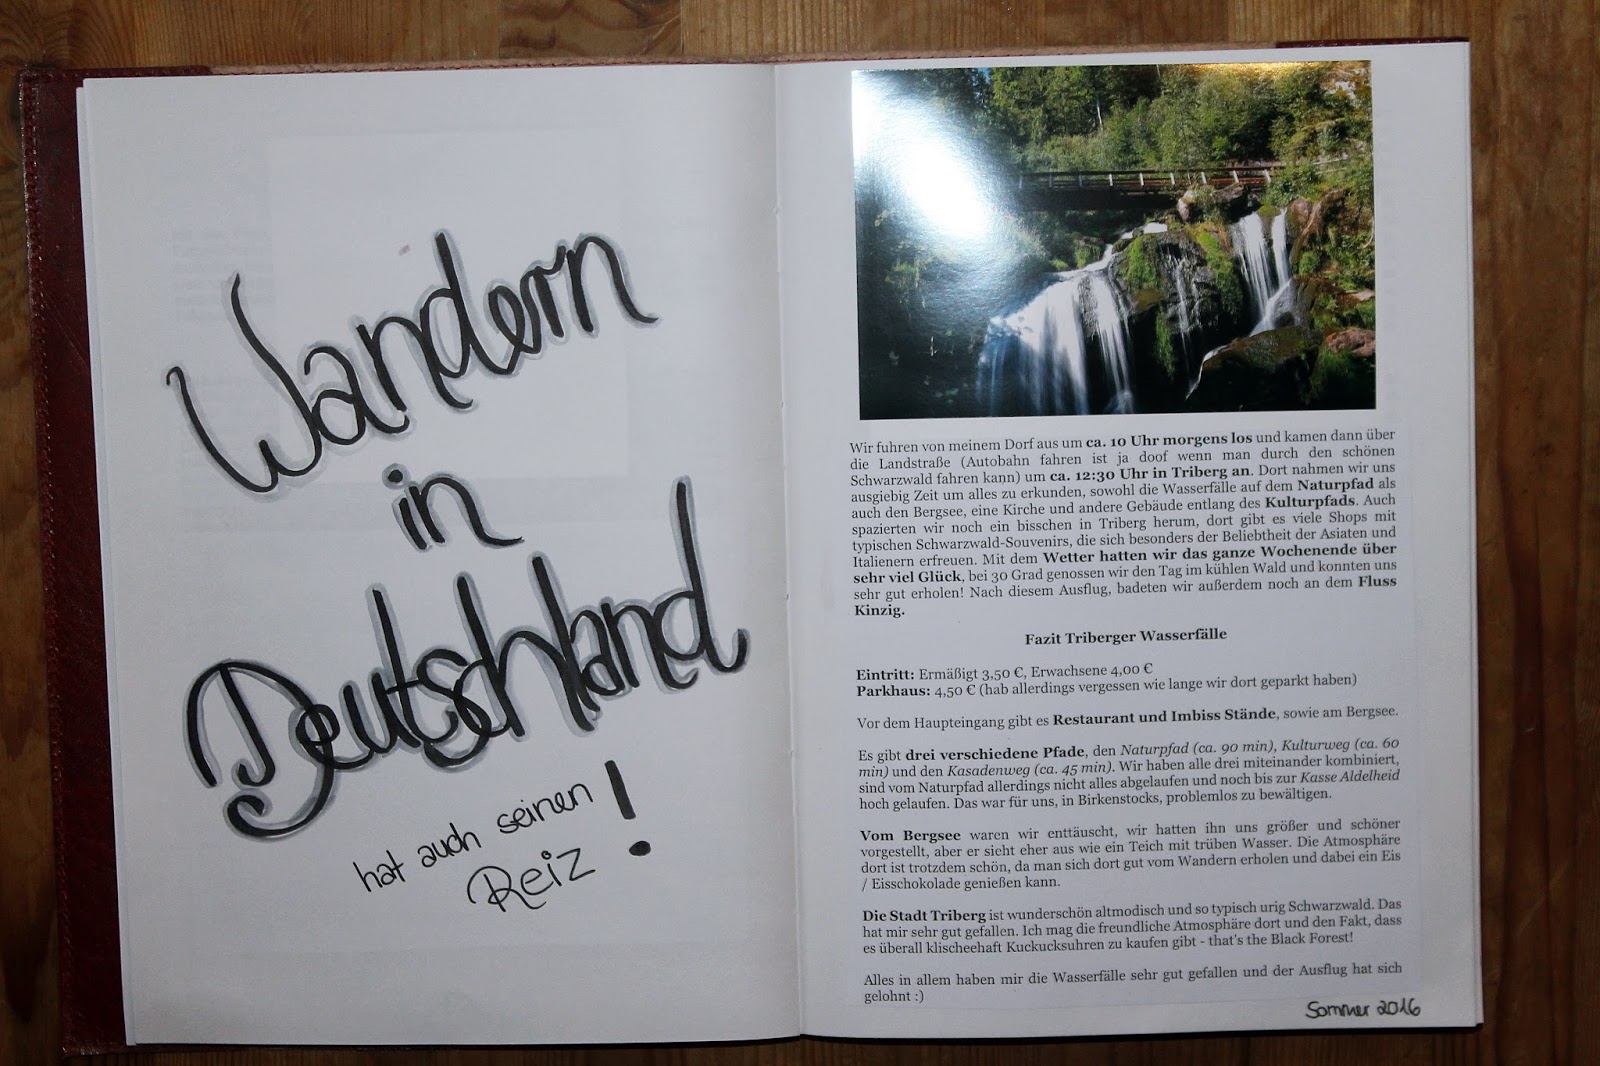 Wandern
in
Deutschland
hat auch seinen
Reiz!
Wir fuhren von meinem Dorf aus um ca. 10 Uhr morgens los und kamen dann über
die Landstraße (Autobahn fahren ist ja doof wenn man durch den schönen
Schwarzwald fahren kann) um ca. 12:30 Uhr in Triberg an. Dort nahmen wir uns
ausgiebig Zeit um alles zu erkunden, sowohl die Wasserfälle auf dem Naturpfad als
auch den Bergsee, eine Kirche und andere Gebäude entlang des Kulturpfads. Auch
spazierten wir noch ein bisschen in Triberg herum, dort gibt es viele Shops mit
typischen Schwarzwald-Souvenirs, die sich besonders der Beliebtheit der Asiaten und
Italienern erfreuen. Mit dem Wetter hatten wir das ganze Wochenende über
sehr viel Glück, bei 30 Grad genossen wir den Tag im kühlen Wald und konnten uns
sehr gut erholen! Nach diesem Ausflug, badeten wir außerdem noch an dem Fluss
Kinzig.
Fazit Triberger Wasserfälle
Eintritt: Ermäßigt 3,50 €, Erwachsene 4,00 €
Parkhaus: 4,50 € (hab allerdings vergessen wie lange wir dort geparkt haben)
Vor dem Haupteingang gibt es Restaurant und Imbiss Stände, sowie am Bergsee.
Es gibt drei verschiedene Pfade, den Naturpfad (ca. 90 min), Kulturweg (ca. 60
min) und den Kasadenweg (ca. 45 min). Wir haben alle drei miteinander kombiniert,
sind vom Naturpfad allerdings nicht alles abgelaufen und noch bis zur Kasse Aldelheid
hoch gelaufen. Das war für uns, in Birkenstocks, problemlos zu bewältigen.
Vom Bergsee waren wir enttäuscht, wir hatten ihn uns größer und schöner
vorgestellt, aber er sieht eher aus wie ein Teich mit trüben Wasser. Die Atmosphäre
dort ist trotzdem schön, da man sich dort gut vom Wandern erholen und dabei ein Eis
/ Eisschokolade genießen kann.
Die Stadt Triberg ist wunderschön altmodisch und so typisch urig Schwarzwald. Das
hat mir sehr gut gefallen. Ich mag die freundliche Atmosphäre dort und den Fakt, dass
es überall klischeehaft Kuckucksuhren zu kaufen gibt - that's the Black Forest!
Alles in allem haben mir die Wasserfälle sehr gut gefallen und der Ausflug hat sich
gelohnt :)
Sommer 2016